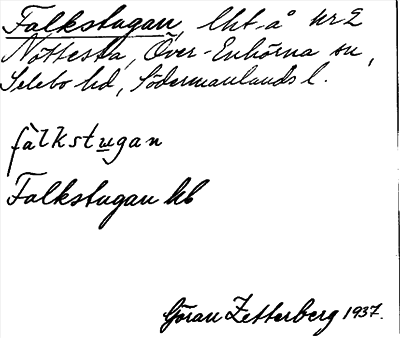 Falkstugan, lht å nr 2
Nöttesta, Över-Enhörna sn,
Selebo hd, Södermanlands l.
fàlkstugan
Falkstugan hb
Göran Zetterberg 1937.